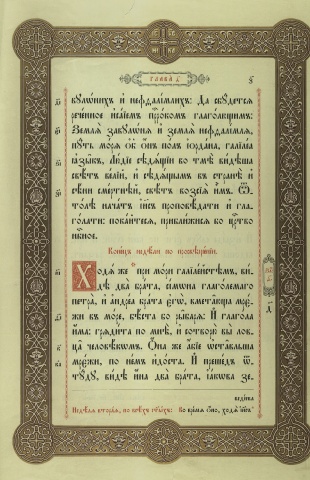 ГЛАВА́ д҃.
ѕ
вꙋлѡ́нихъ и҆ нефѳалі́млихъ: Да сбꙋ́детсѧ
рече́нное и҆са́їемъ прⷪ҇ро́комъ глаго́лющимъ:
Землѧ̀ завꙋлѡ́нѧ и҆ землѧ̀ нефѳалі́млѧ,
пꙋ́ть мо́рѧ ѡ҆б̾ ѻ҆́нъ по́лъ і҆ѻрда́на, галїле́а
ꙗ҆зы̑къ, Лю́дїе сѣдѧ́щїи во тмѣ̀ ви́дѣша
свѣ́тъ ве́лїй, и҆ сѣдѧ́щымъ въ странѣ̀ и҆
сѣ́ни сме́ртнѣй, свѣ́тъ возсїѧ̀ и҆̀мъ. Ѿ-
то́лѣ нача́тъ і҆и҃съ проповѣ́дати и҆ гла-
го́лати: пока́йтесѧ, прибли́жисѧ бо црⷭ҇тво
нбⷭ҇ное.
Коне́цъ недѣ́ли по просвѣще́нїи.
Ходѧ́ же при мо́ри галїле́йстѣмъ, ви́-
дѣ два̀ бра̑та, сі́мѡна глаго́лемаго
петра̀, и҆ а҆ндре́а бра́та є҆гѡ̀, вмета̑юща мре́-
жи въ мо́ре, бѣ́ста бо ры̑барѧ: И҆ глаго́ла
и҆́ма: грѧди́та по мнѣ̀, и҆ сотворю̀ вы̀ лов-
ца̑ человѣ́кѡмъ. Ѻ҆́на же а҆́бїе ѡ҆ста̑вльша
мрє́жи, по не́мъ и҆до́ста. И҆ преше́дъ ѿ-
тꙋ́дꙋ, ви́дѣ и҆́на два̀ бра̑та, і҆а́кѡва зе-
ведє́ова
Недѣ́лѧ втора́ѧ, по всѣ́хъ ст҃ы́хъ: Во вре́мѧ ѻ҆́но, ходѧ̀ і҆и҃съ